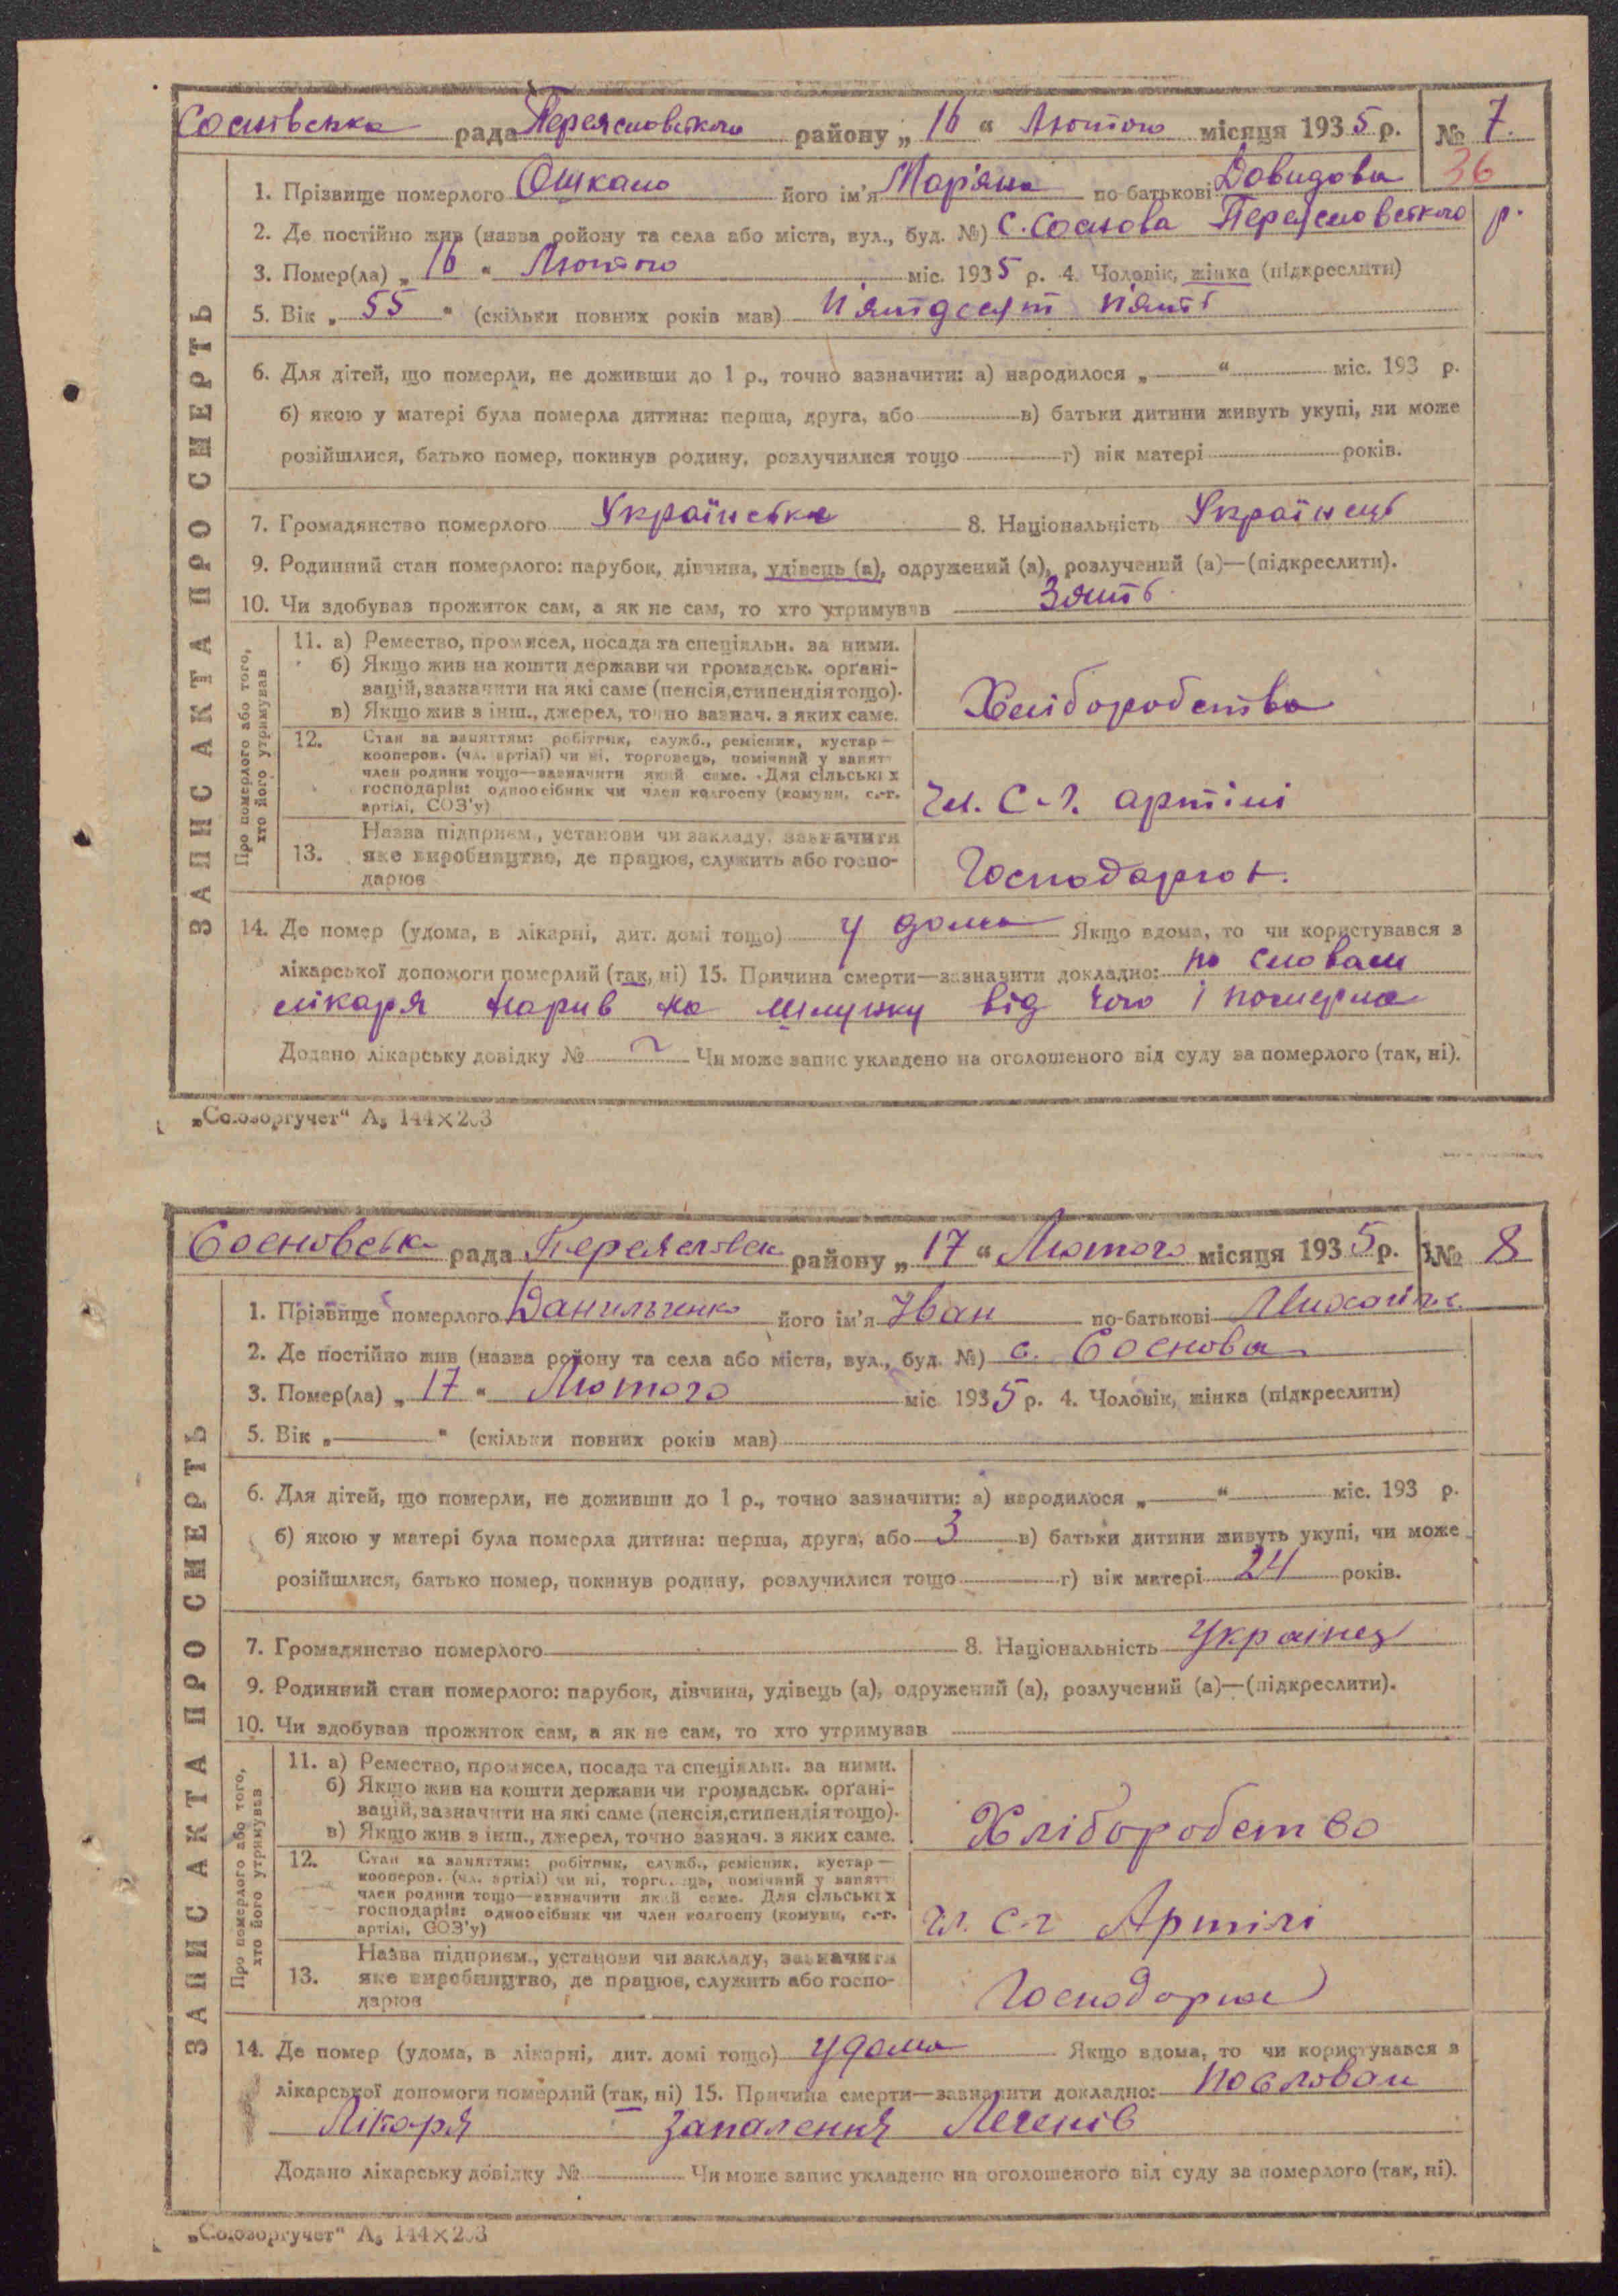 Соснівська рада Переясловського району „ 16 “ Лютого місяця 1935 р. № 7.
36
1. Прізвище померлого Ошкало його ім'я Мар'яна по-батькові Довидова
2. Де постійно жив (назва району та села або міста, вул., буд. №) с. Соснова Переясловського р.
3. Помер(ла) „ 16 “ Лютого міс. 1935 р. 4. Чоловік, жінка (підкреслити)
5. Вік „ 55 “ (скільки повних років мав) п'ятдесят п'ять
6. Для дітей, що померли, не доживши до 1 р., точно зазначити: а) народилося „ — “ міс. 193 р.
б) якою у матері була померла дитина: перша, друга, або — в) батьки дитини живуть укупі, чи може
розійшлися, батько помер, покинув родину, розлучилися тощо — г) вік матері — років.
7. Громадянство померлого Українська 8. Національність Українець
9. Родинний стан померлого: парубок, дівчина, удівець (а), одружений (а), розлучений (а)—(підкреслити).
10. Чи здобував прожиток сам, а як не сам, то хто утримував Зять
ЗАПИС АКТА ПРО СМЕРТЬ
Про померлого або того,
хто його утримував
11. а) Ремество, промисел, посада та спеціяльн. за ними.
б) Якщо жив на кошти держави чи громадськ. організацій, зазначити на які саме (пенсія, стипендія тощо).
в) Якщо жив з інш., джерел, точно зазнач. з яких саме.
Хліборобство
12. Стан за заняттям: робітник, служб., ремісник, кустар—
кооперов. (чл. артілі) чи ні, торговець, помічний у занят.
член родини тощо—зазначити який саме. Для сільських
господарів: одноосібник чи член колгоспу (комуни, с.-г.
артілі, СОЗ'у)
Чл. С-г. артілі
13. Назва підприєм., установи чи закладу, зазначити
яке виробництво, де працює, служить або господарює
Господарює.
14. Де помер (удома, в лікарні, дит. домі тощо) у дома Якщо вдома, то чи користувався з
лікарської допомоги померлий (так, ні) 15. Причина смерти—зазначити докладно: по словам
лікаря нарив на шлунку від чого і померла
Додано лікарську довідку № Чи може запис укладено на оголошеного від суду за померлого (так, ні).
„Союзоргучет“ А₅ 144×203
Сосновська рада Переяславськ району „ 17 “ Лютого місяця 1935 р. № 8
1. Прізвище померлого Данильченко його ім'я Іван по-батькові
2. Де постійно жив (назва району та села або міста, вул., буд. №) с. Соснова
3. Помер(ла) „ 17 “ Лютого міс. 1935 р. 4. Чоловік, жінка (підкреслити)
5. Вік „ — “ (скільки повних років мав)
6. Для дітей, що померли, не доживши до 1 р., точно зазначити: а) народилося „ — “ міс. 193 р.
б) якою у матері була померла дитина: перша, друга, або 3 в) батьки дитини живуть укупі, чи може
розійшлися, батько помер, покинув родину, розлучилися тощо — г) вік матері 24 років.
7. Громадянство померлого — 8. Національність Українец
9. Родинний стан померлого: парубок, дівчина, удівець (а), одружений (а), розлучений (а)—(підкреслити).
10. Чи здобував прожиток сам, а як не сам, то хто утримував
ЗАПИС АКТА ПРО СМЕРТЬ
Про померлого або того,
хто його утримував
11. а) Ремество, промисел, посада та спеціяльн. за ними.
б) Якщо жив на кошти держави чи громадськ. організацій, зазначити на які саме (пенсія, стипендія тощо).
в) Якщо жив з інш., джерел, точно зазнач. з яких саме.
Хліборобство
12. Стан за заняттям: робітник, служб., ремісник, кустар—
кооперов. (чл. артілі) чи ні, торговець, помічний у занят.
член родини тощо—зазначити який саме. Для сільських
господарів: одноосібник чи член колгоспу (комуни, с.-г.
артілі, СОЗ'у)
чл. с-г Артілі
13. Назва підприєм., установи чи закладу, зазначити
яке виробництво, де працює, служить або господарює
Господарює
14. Де помер (удома, в лікарні, дит. домі тощо) удома Якщо вдома, то чи користувався з
лікарської допомоги померлий (так, ні) 15. Причина смерти—зазначити докладно: по словам
Лікаря запалення Легенів
Додано лікарську довідку № Чи може запис укладено на оголошеного від суду за померлого (так, ні).
„Союзоргучет“ А₅ 144×203